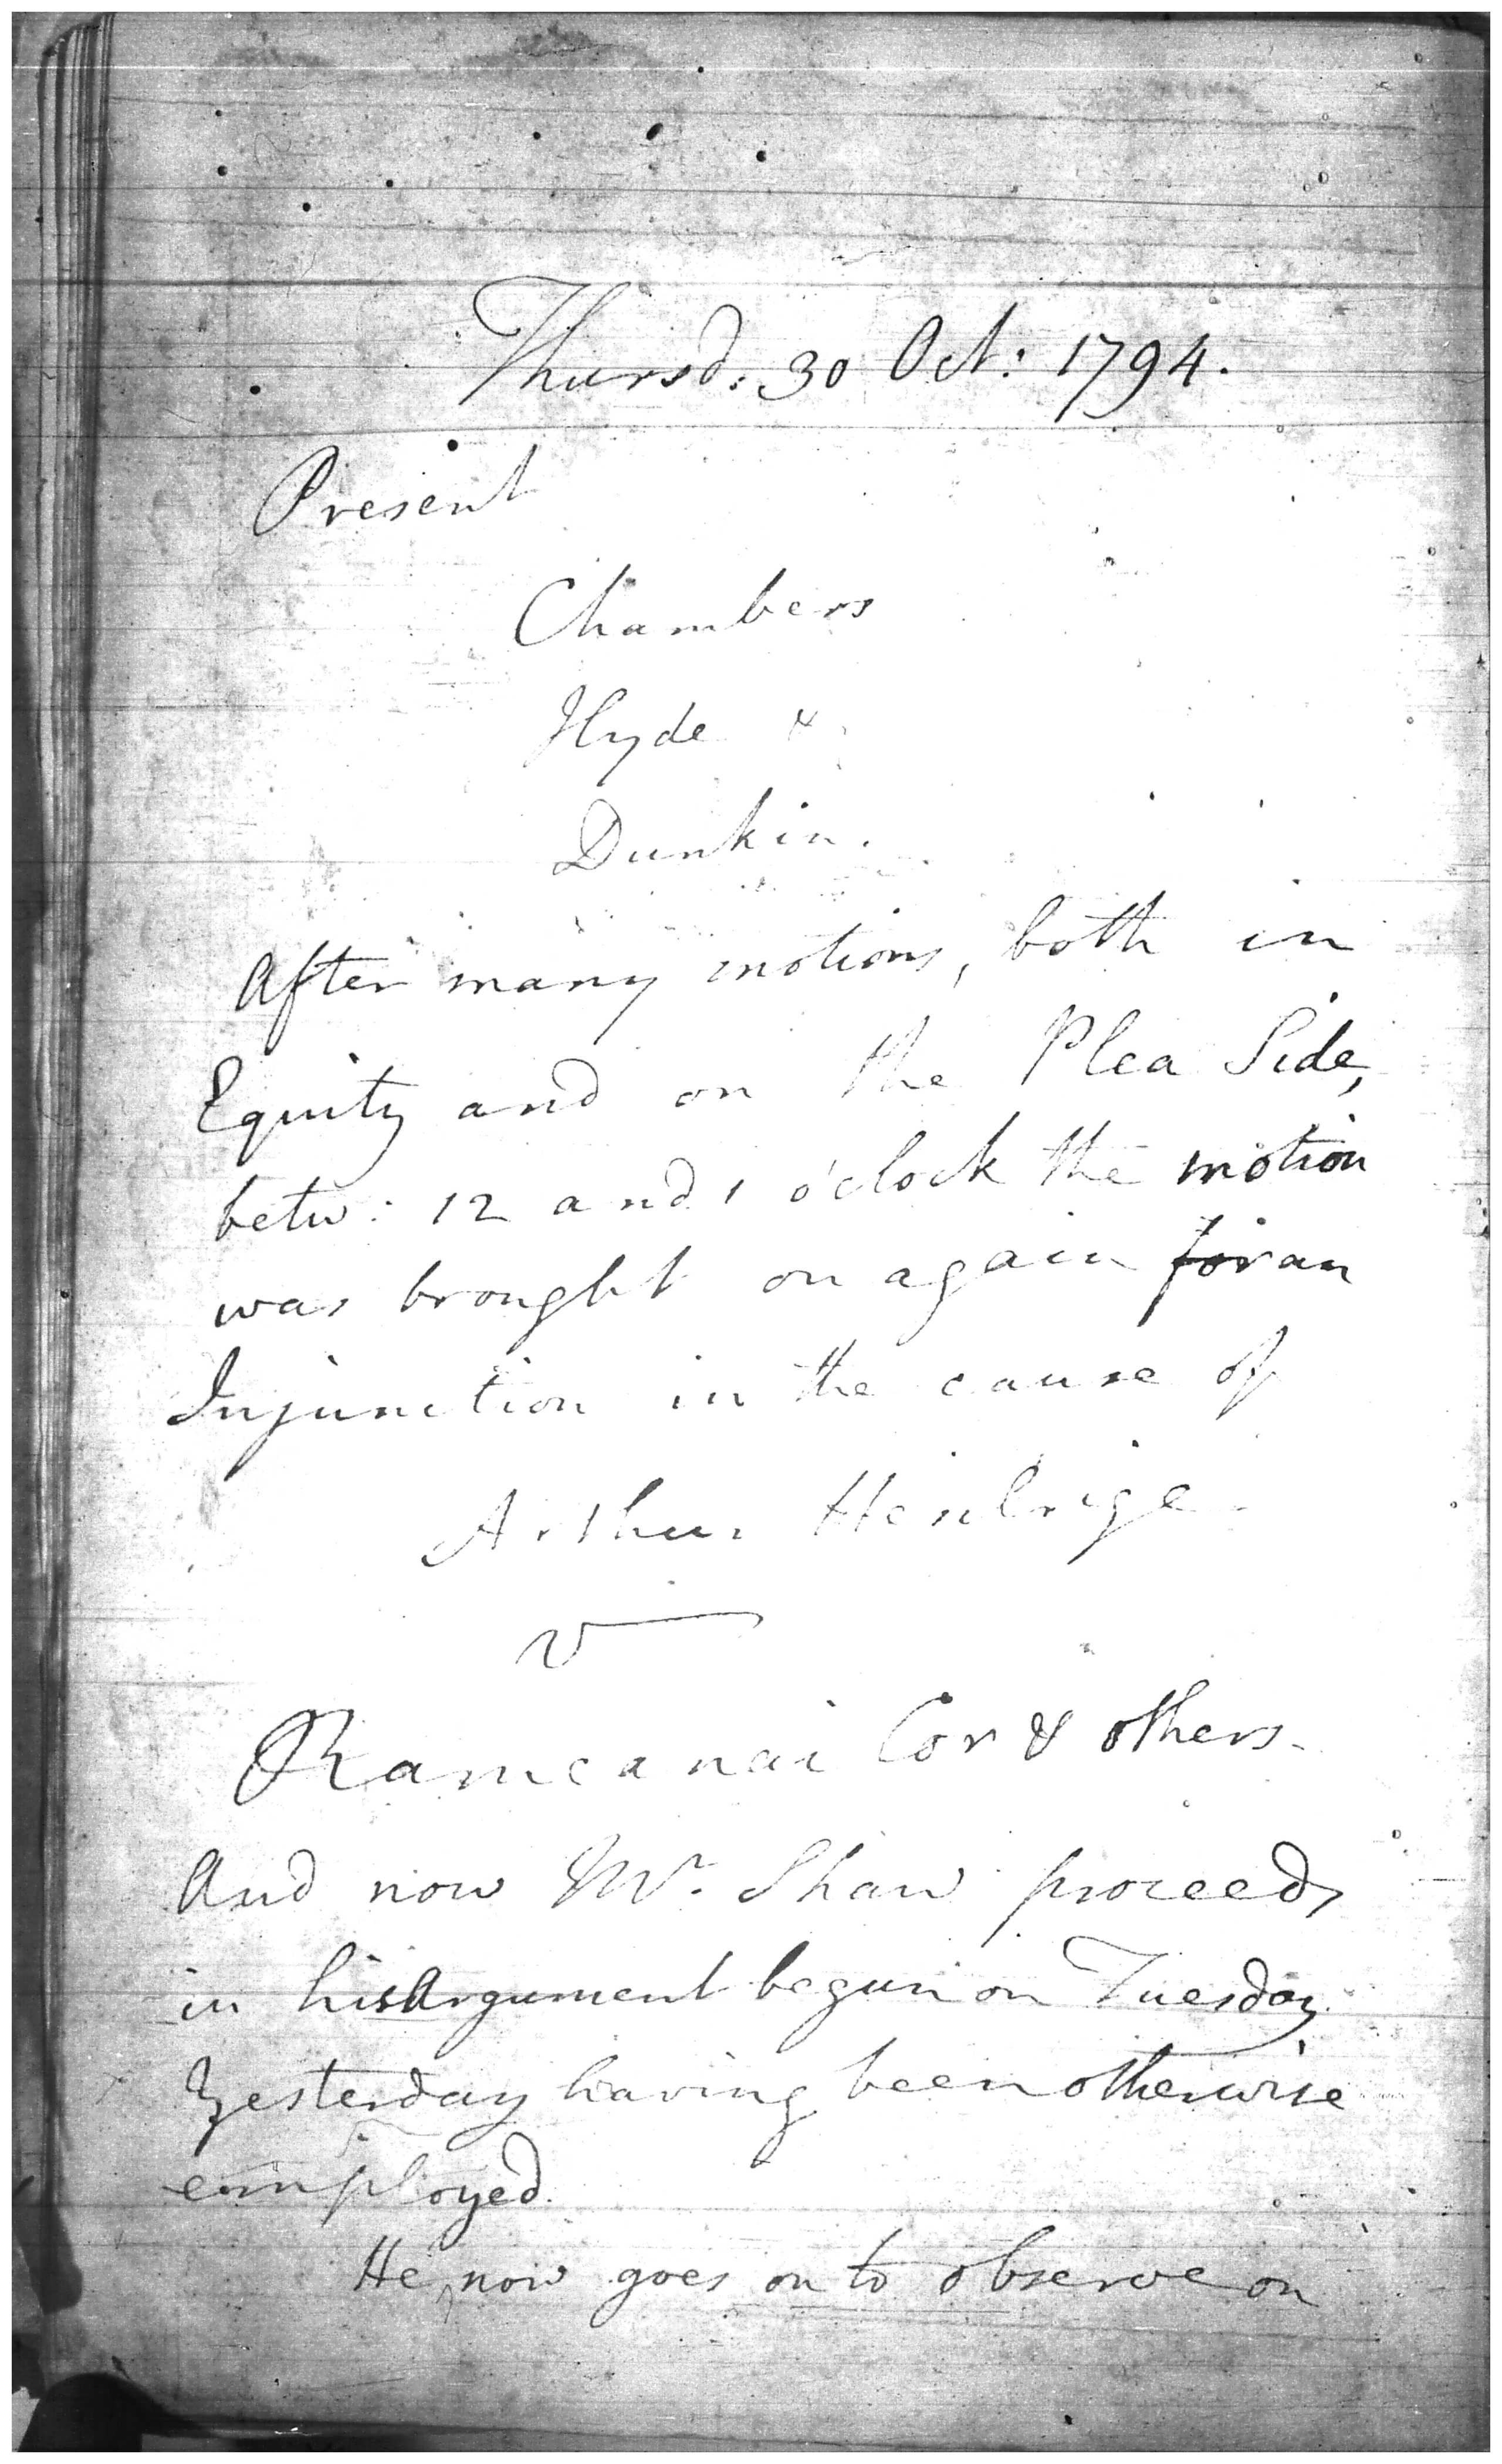 Thursd: 30 Oct: 1794.
Present
Chambers
Hyde &
Dunkin.
After many motions, both in
Equity and on the Plea Side,
betw: 12 and 1 o'clock the motion
was brought on again for an
Injunction in the cause of
Arthur Hesilrige
v
Ramcanai Cor & others.
And now Mr. Shaw proceeds
in his Argument begun on Tuesday
Yesterday having been otherwise
employed.
He now goes on to observe on